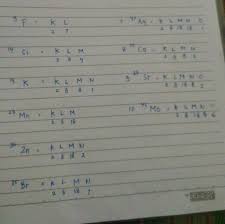 9 F = K L
2 7
14 Si = K L M
2 8 4
19 K = K L M N
2 8 8 1
25 Mn = K L M
2 8 15
30 Zn = K L M N
2 8 18 2
35 Br = K L M N
2 8 18 7
7 47 Ag = K L M N O
2 8 18 18 1
8 Ca = K L M N
2 8 8 2
9 38 Sr = K L M N O
2 8 18 8 2
10 42 Mo = K L M N O